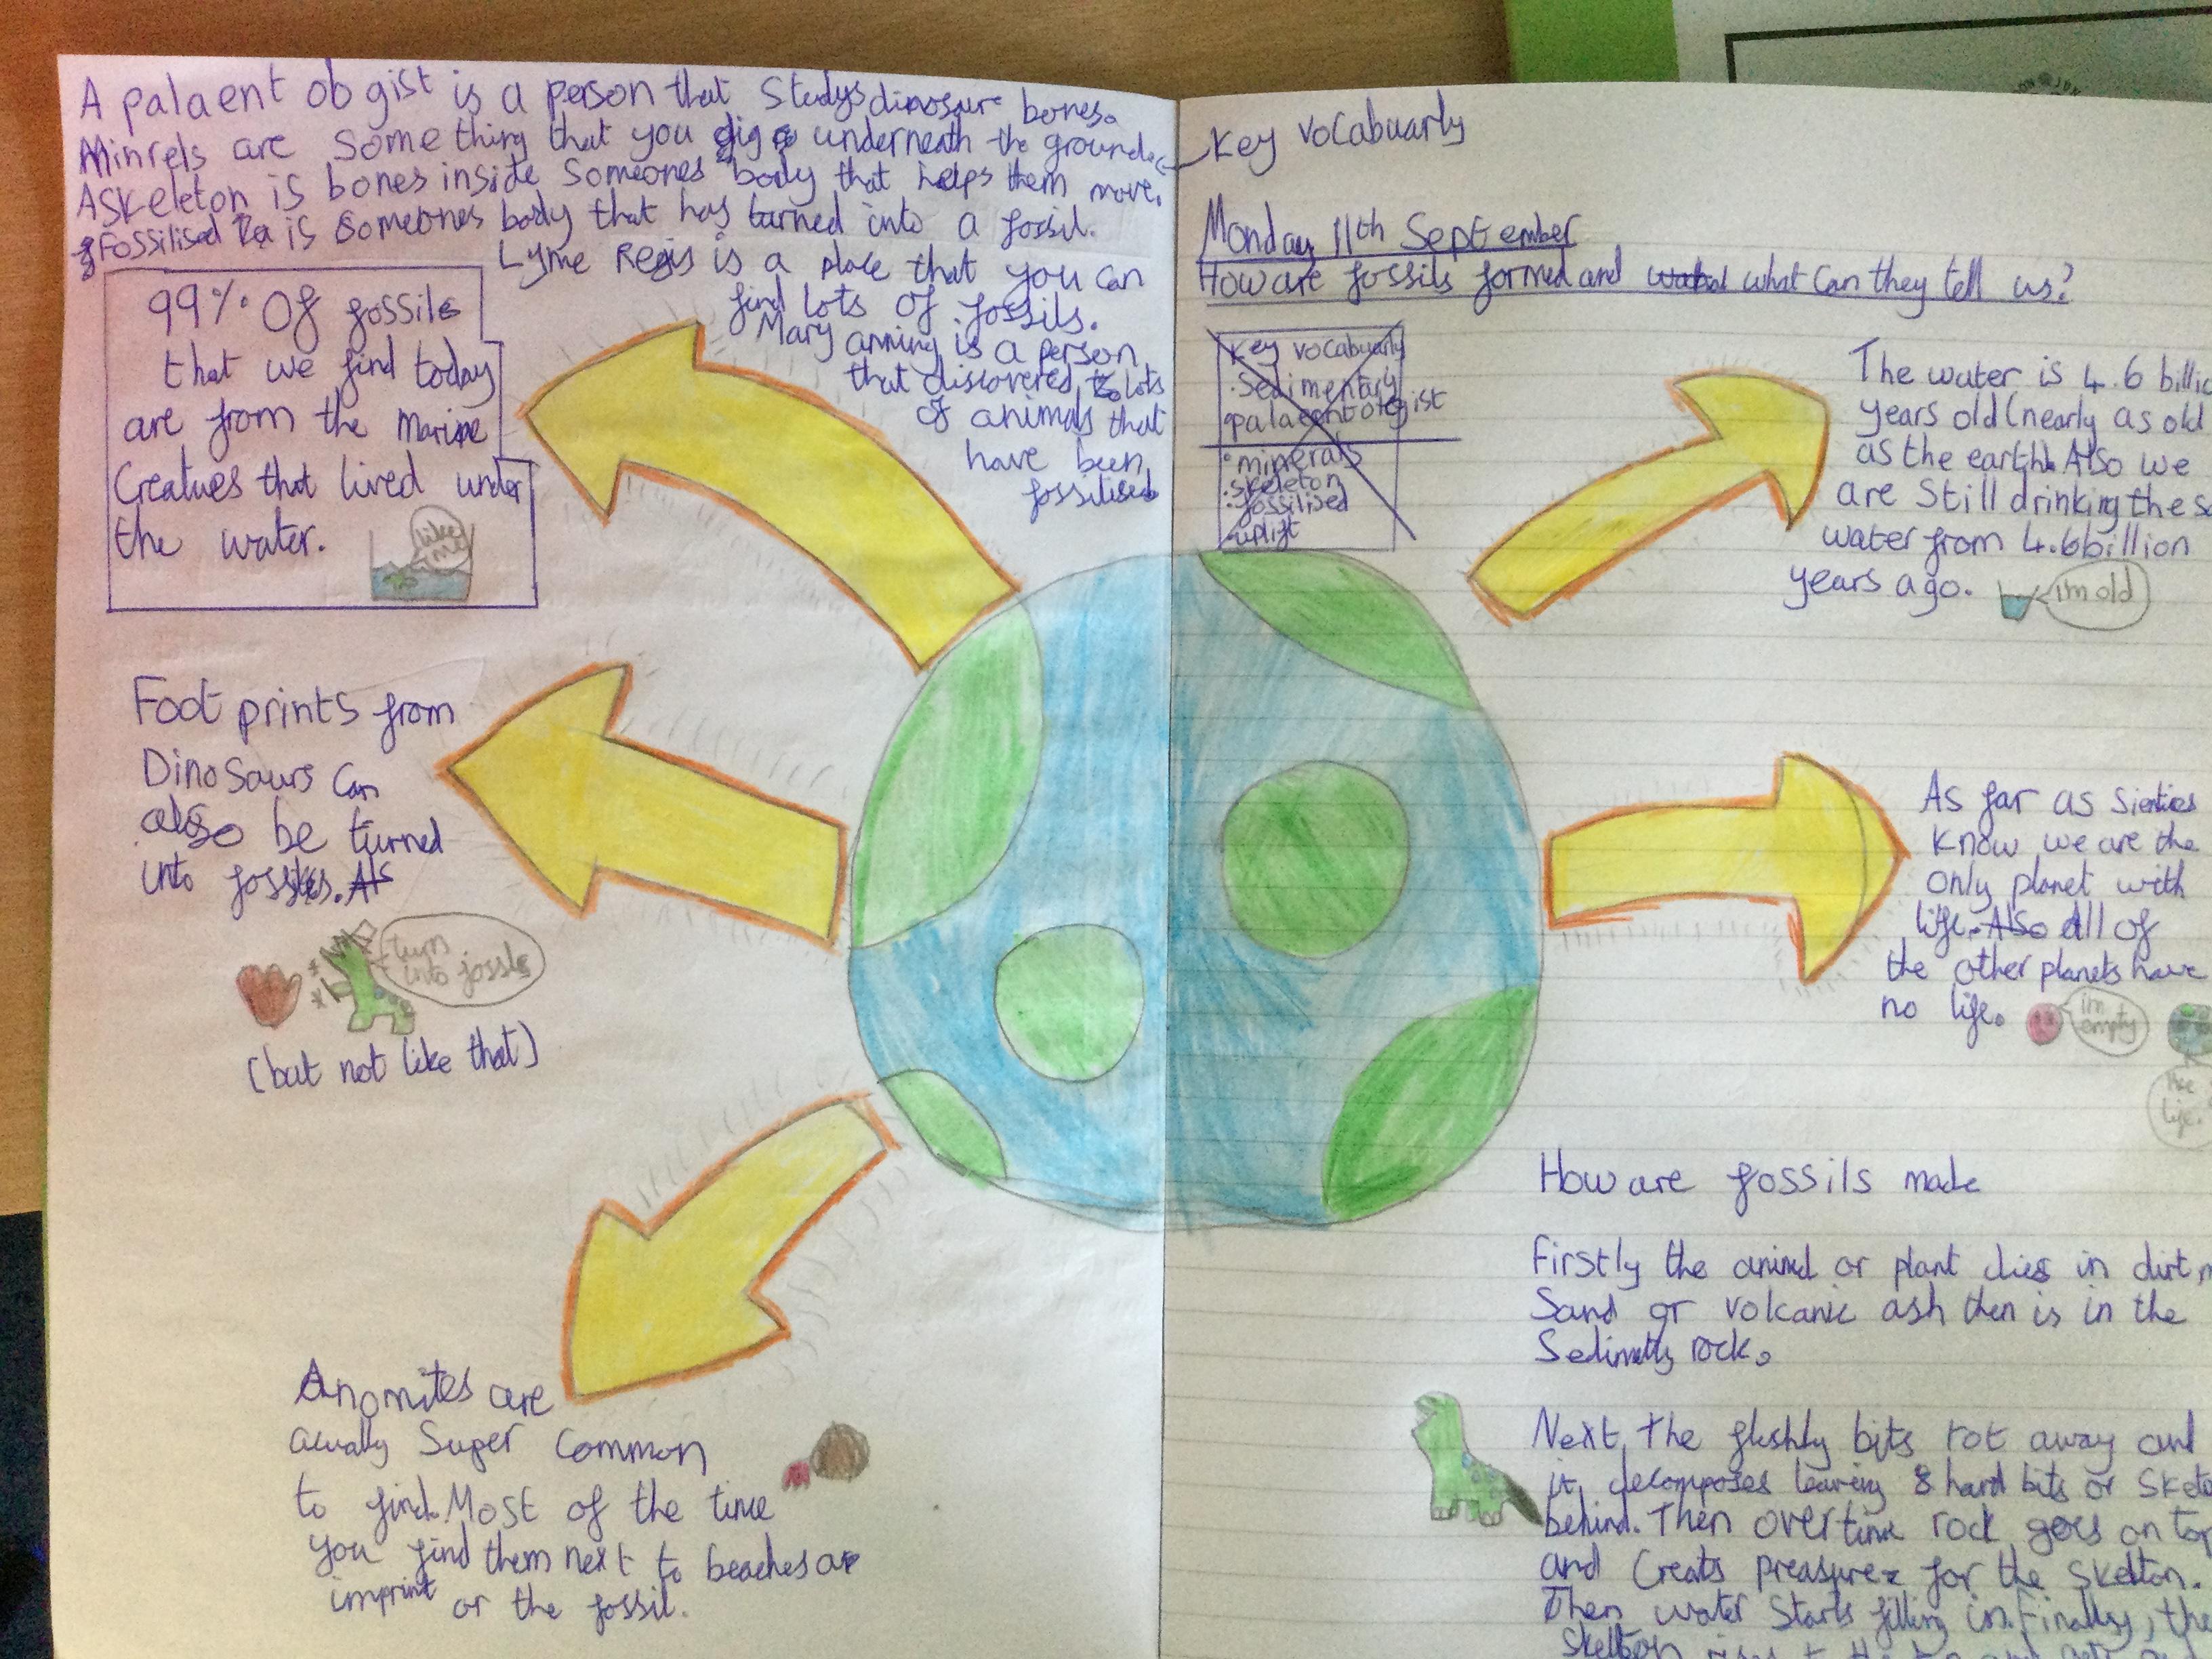 A palaentologist is a person that Studys dinosaur bones.
Minrels are something that you dig underneath the ground.
A skeleton is bones inside someones body that helps them move.
Fossilised is someones body that has turned into a fossil.
Lyme Regis is a place that you can
find lots of fossils.
Mary anning is a person
that discovered lots
of animals that
have been
fossilised
99% Of fossils
that we find today
are from the marine
Creatues that lived under
the water.
like me
Foot prints from
Dinosaurs Can
also be turned
into fossils. Als
turn
into fossils
(but not like that)
Anomites are
acually Super Common
to find. Most of the time
you find them next to beaches
imprint or the fossil.
Key vocabuarly
Monday 11th September
How are fossils formed and what can they tell us?
Key vocabuarly
• Sedimentary
• palaeontologist
• minerals
• skeleton
• fossilised
• uplift
The water is 4.6 billio
years old (nearly as old
as the earth). Also we
are still drinking the sa
water from 4.6 billion
years ago.
i'm old
As far as Sientises
know we are the
only planet with
life. Also all of
the other planets have
no life.
i'm
empty
life.
How are fossils made
Firstly the animal or plant dies in dirt,
Sand or volcanic ash then is in the
Sedimetry rock.
Next, the fleshly bits rot away and
it decomposes leaving hard bits or Skele
behind. Then overtime rock goes on top
and Creats preasure for the Skelton.
Then water Starts filling in. Finally, the
Skelton